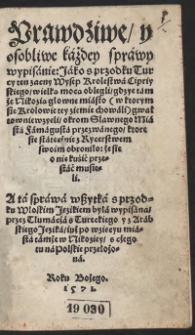 Prawdźiwe/ y
osobliwe każdey sprawy
wypisánie: Jáko s przodku Tur
cy ten zacny Wysep Krolestwá Cipriy
skiego/ wielką mocą obiegli/ gdzye tám
że Nikozią głowne miásto ( w ktorym
sie Krolowie tey ziemie chowáli) gwał
townie wzyęli/ okrom Sławnego Miá
stá Fámágustá przezwánego/ ktore
sie státecznie z Rycerstwem
swoim obroniło: że sie
o nie kuśić prze-
stáć musie-
li.
A tá spráwá wszytká s przod-
ku Włoskim Jezikiem byłá wypisána/
przez Tłumáczá s Tureckiego y z Aráb
skiego Jeziká/ iuż po wzięciu miá-
stá támże w Nikoziey/ s czego
tu ná Polskie przełożo-
na.
Roku Bożego.
1571.
19 030